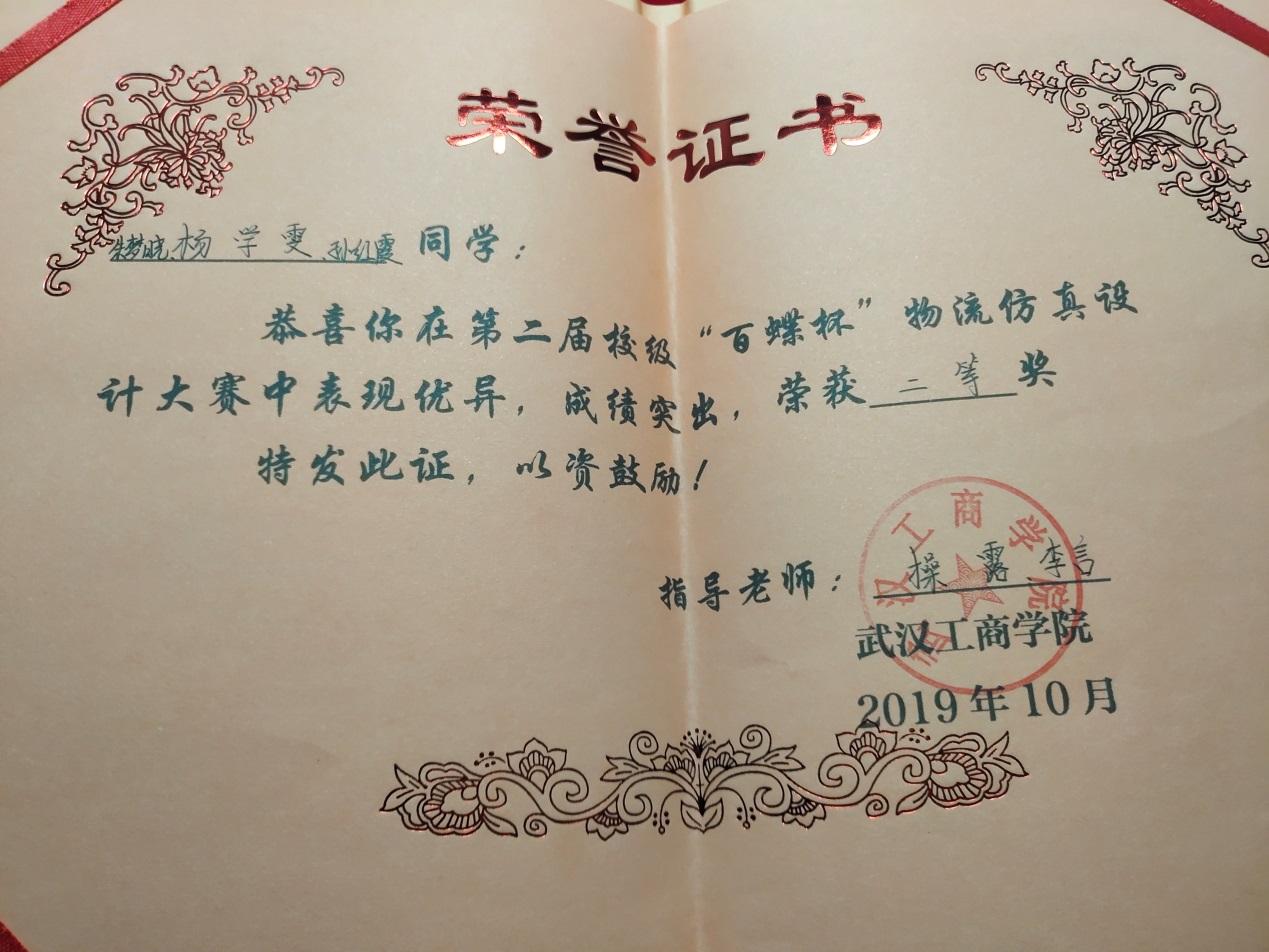 荣誉证书
朱梦晓、杨学雯、孙红霞同学：
恭喜你在第二届校级“百蝶杯”物流仿真设
计大赛中表现优异，成绩突出，荣获二等奖
特发此证，以资鼓励！
指导老师：操露 李言
武汉工商学院
武汉工商学院
2019年10月